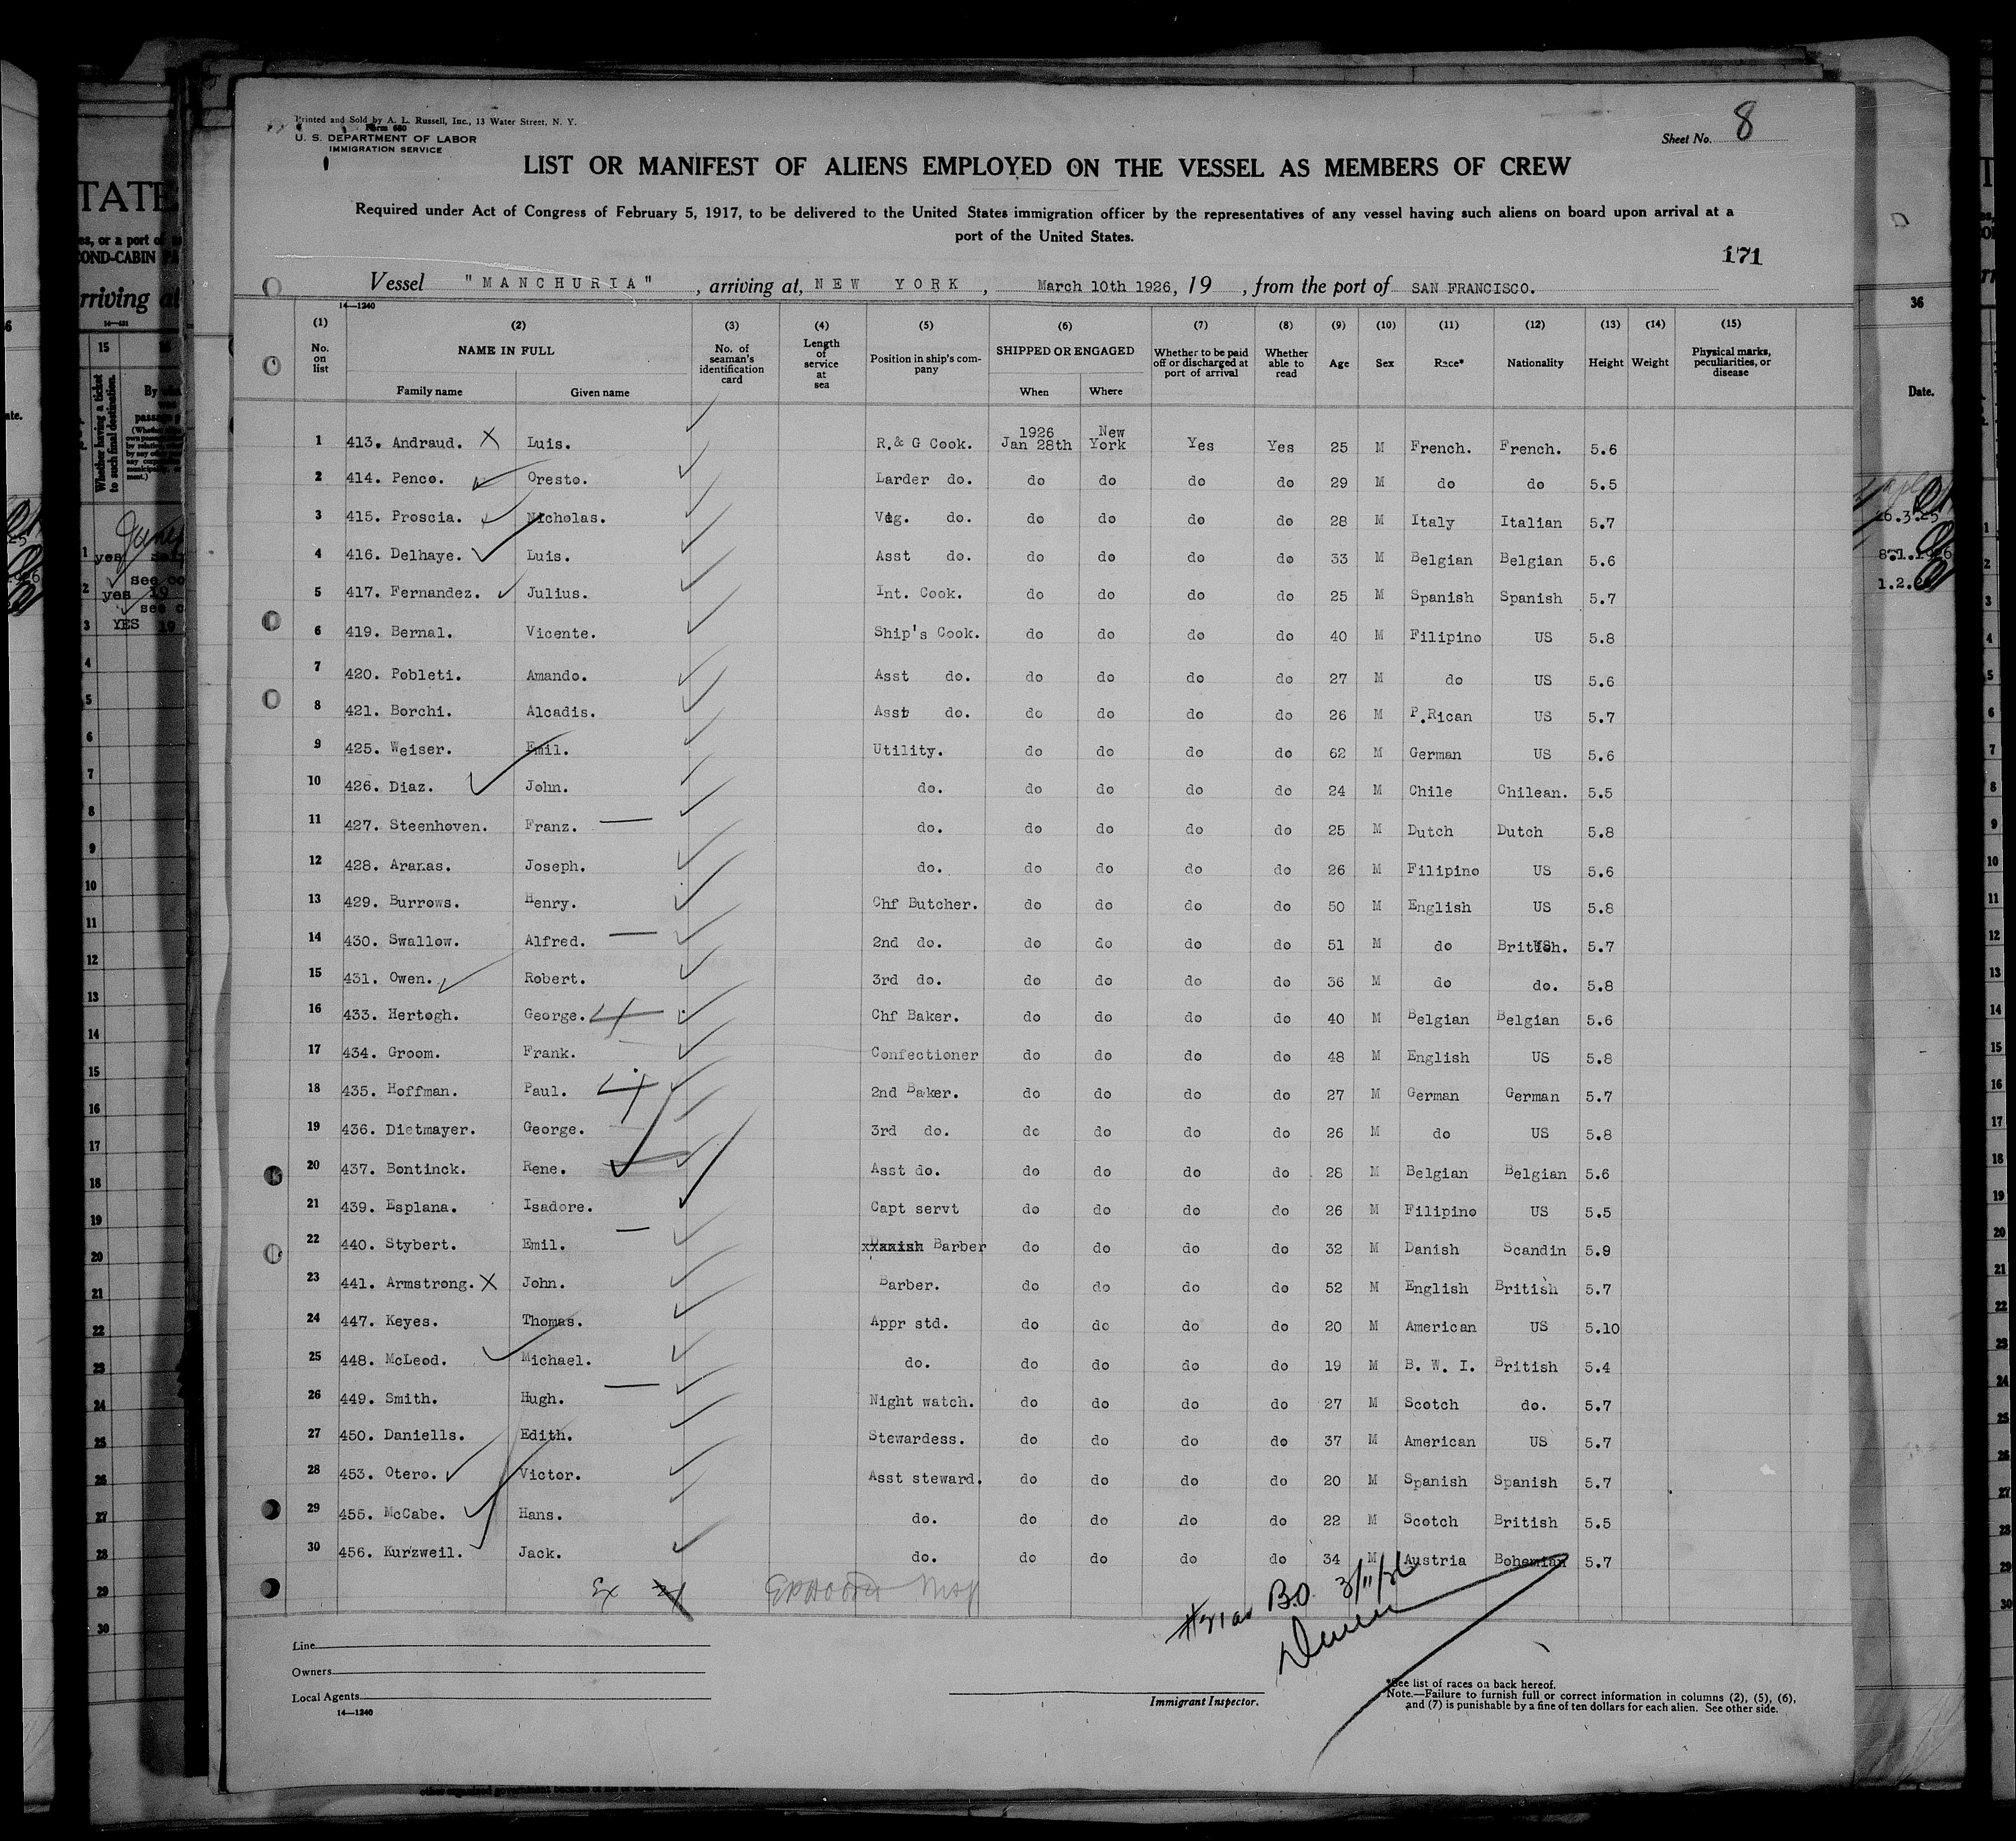 Printed and Sold by A. L. Russell, Inc., 13 Water Street, N. Y.
Form 680
U. S. DEPARTMENT OF LABOR
IMMIGRATION SERVICE
Sheet No. 8
LIST OR MANIFEST OF ALIENS EMPLOYED ON THE VESSEL AS MEMBERS OF CREW
Required under Act of Congress of February 5, 1917, to be delivered to the United States immigration officer by the representatives of any vessel having such aliens on board upon arrival at a
port of the United States.
171
Vessel "MANCHURIA", arriving at, NEW YORK, March 10th 1926, 19 , from the port of SAN FRANCISCO.
14—1240
(1) (2) (3) (4) (5) (6) (7) (8) (9) (10) (11) (12) (13) (14) (15)
No. on list NAME IN FULL Family name Given name No. of seaman's identification card Length of service at sea Position in ship's company SHIPPED OR ENGAGED When Where Whether to be paid off or discharged at port of arrival Whether able to read Age Sex Race* Nationality Height Weight Physical marks, peculiarities, or disease
1 413. Andraud. X Luis. R.& G Cook. 1926 Jan 28th New York Yes Yes 25 M French. French. 5.6
2 414. Penco. Oresto. Larder do. do do do do 29 M do do 5.5
3 415. Proscia. Nicholas. Veg. do. do do do do 28 M Italy Italian 5.7
4 416. Delhaye. Luis. Asst do. do do do do 33 M Belgian Belgian 5.6
5 417. Fernandez. Julius. Int. Cook. do do do do 25 M Spanish Spanish 5.7
6 419. Bernal. Vicente. Ship's Cook. do do do do 40 M Filipino US 5.8
7 420. Pobleti. Amando. Asst do. do do do do 27 M do US 5.6
8 421. Borchi. Alcadis. Asst do. do do do do 26 M P.Rican US 5.7
9 425. Weiser. Emil. Utility. do do do do 62 M German US 5.6
10 426. Diaz. John. do. do do do do 24 M Chile Chilean. 5.5
11 427. Steenhoven. Franz. do. do do do do 25 M Dutch Dutch 5.8
12 428. Aranas. Joseph. do. do do do do 26 M Filipino US 5.6
13 429. Burrows. Henry. Chf Butcher. do do do do 50 M English US 5.8
14 430. Swallow. Alfred. 2nd do. do do do do 51 M do British. 5.7
15 431. Owen. Robert. 3rd do. do do do do 36 M do do. 5.8
16 433. Hertogh. George. Chf Baker. do do do do 40 M Belgian Belgian 5.6
17 434. Groom. Frank. Confectioner do do do do 48 M English US 5.8
18 435. Hoffman. Paul. 2nd Baker. do do do do 27 M German German 5.7
19 436. Dietmayer. George. 3rd do. do do do do 26 M do US 5.8
20 437. Bontinck. Rene. Asst do. do do do do 28 M Belgian Belgian 5.6
21 439. Esplana. Isadore. Capt servt do do do do 26 M Filipino US 5.5
22 440. Stybert. Emil. Barber do do do do 32 M Danish Scandin 5.9
23 441. Armstrong. X John. Barber. do do do do 52 M English British 5.7
24 447. Keyes. Thomas. Appr std. do do do do 20 M American US 5.10
25 448. McLeod. Michael. do. do do do do 19 M B. W. I. British 5.4
26 449. Smith. Hugh. Night watch. do do do do 27 M Scotch do. 5.7
27 450. Daniells. Edith. Stewardess. do do do do 37 M American US 5.7
28 453. Otero. Victor. Asst steward. do do do do 20 M Spanish Spanish 5.7
29 455. McCabe. Hans. do. do do do do 22 M Scotch British 5.5
30 456. Kurzweil. Jack. do. do do do do 34 M Austria Bohemian 5.7
B.O. 3/11/26
Line
Owners
Local Agents
14—1240
Immigrant Inspector.
*See list of races on back hereof.
Note.—Failure to furnish full or correct information in columns (2), (5), (6),
and (7) is punishable by a fine of ten dollars for each alien. See other side.